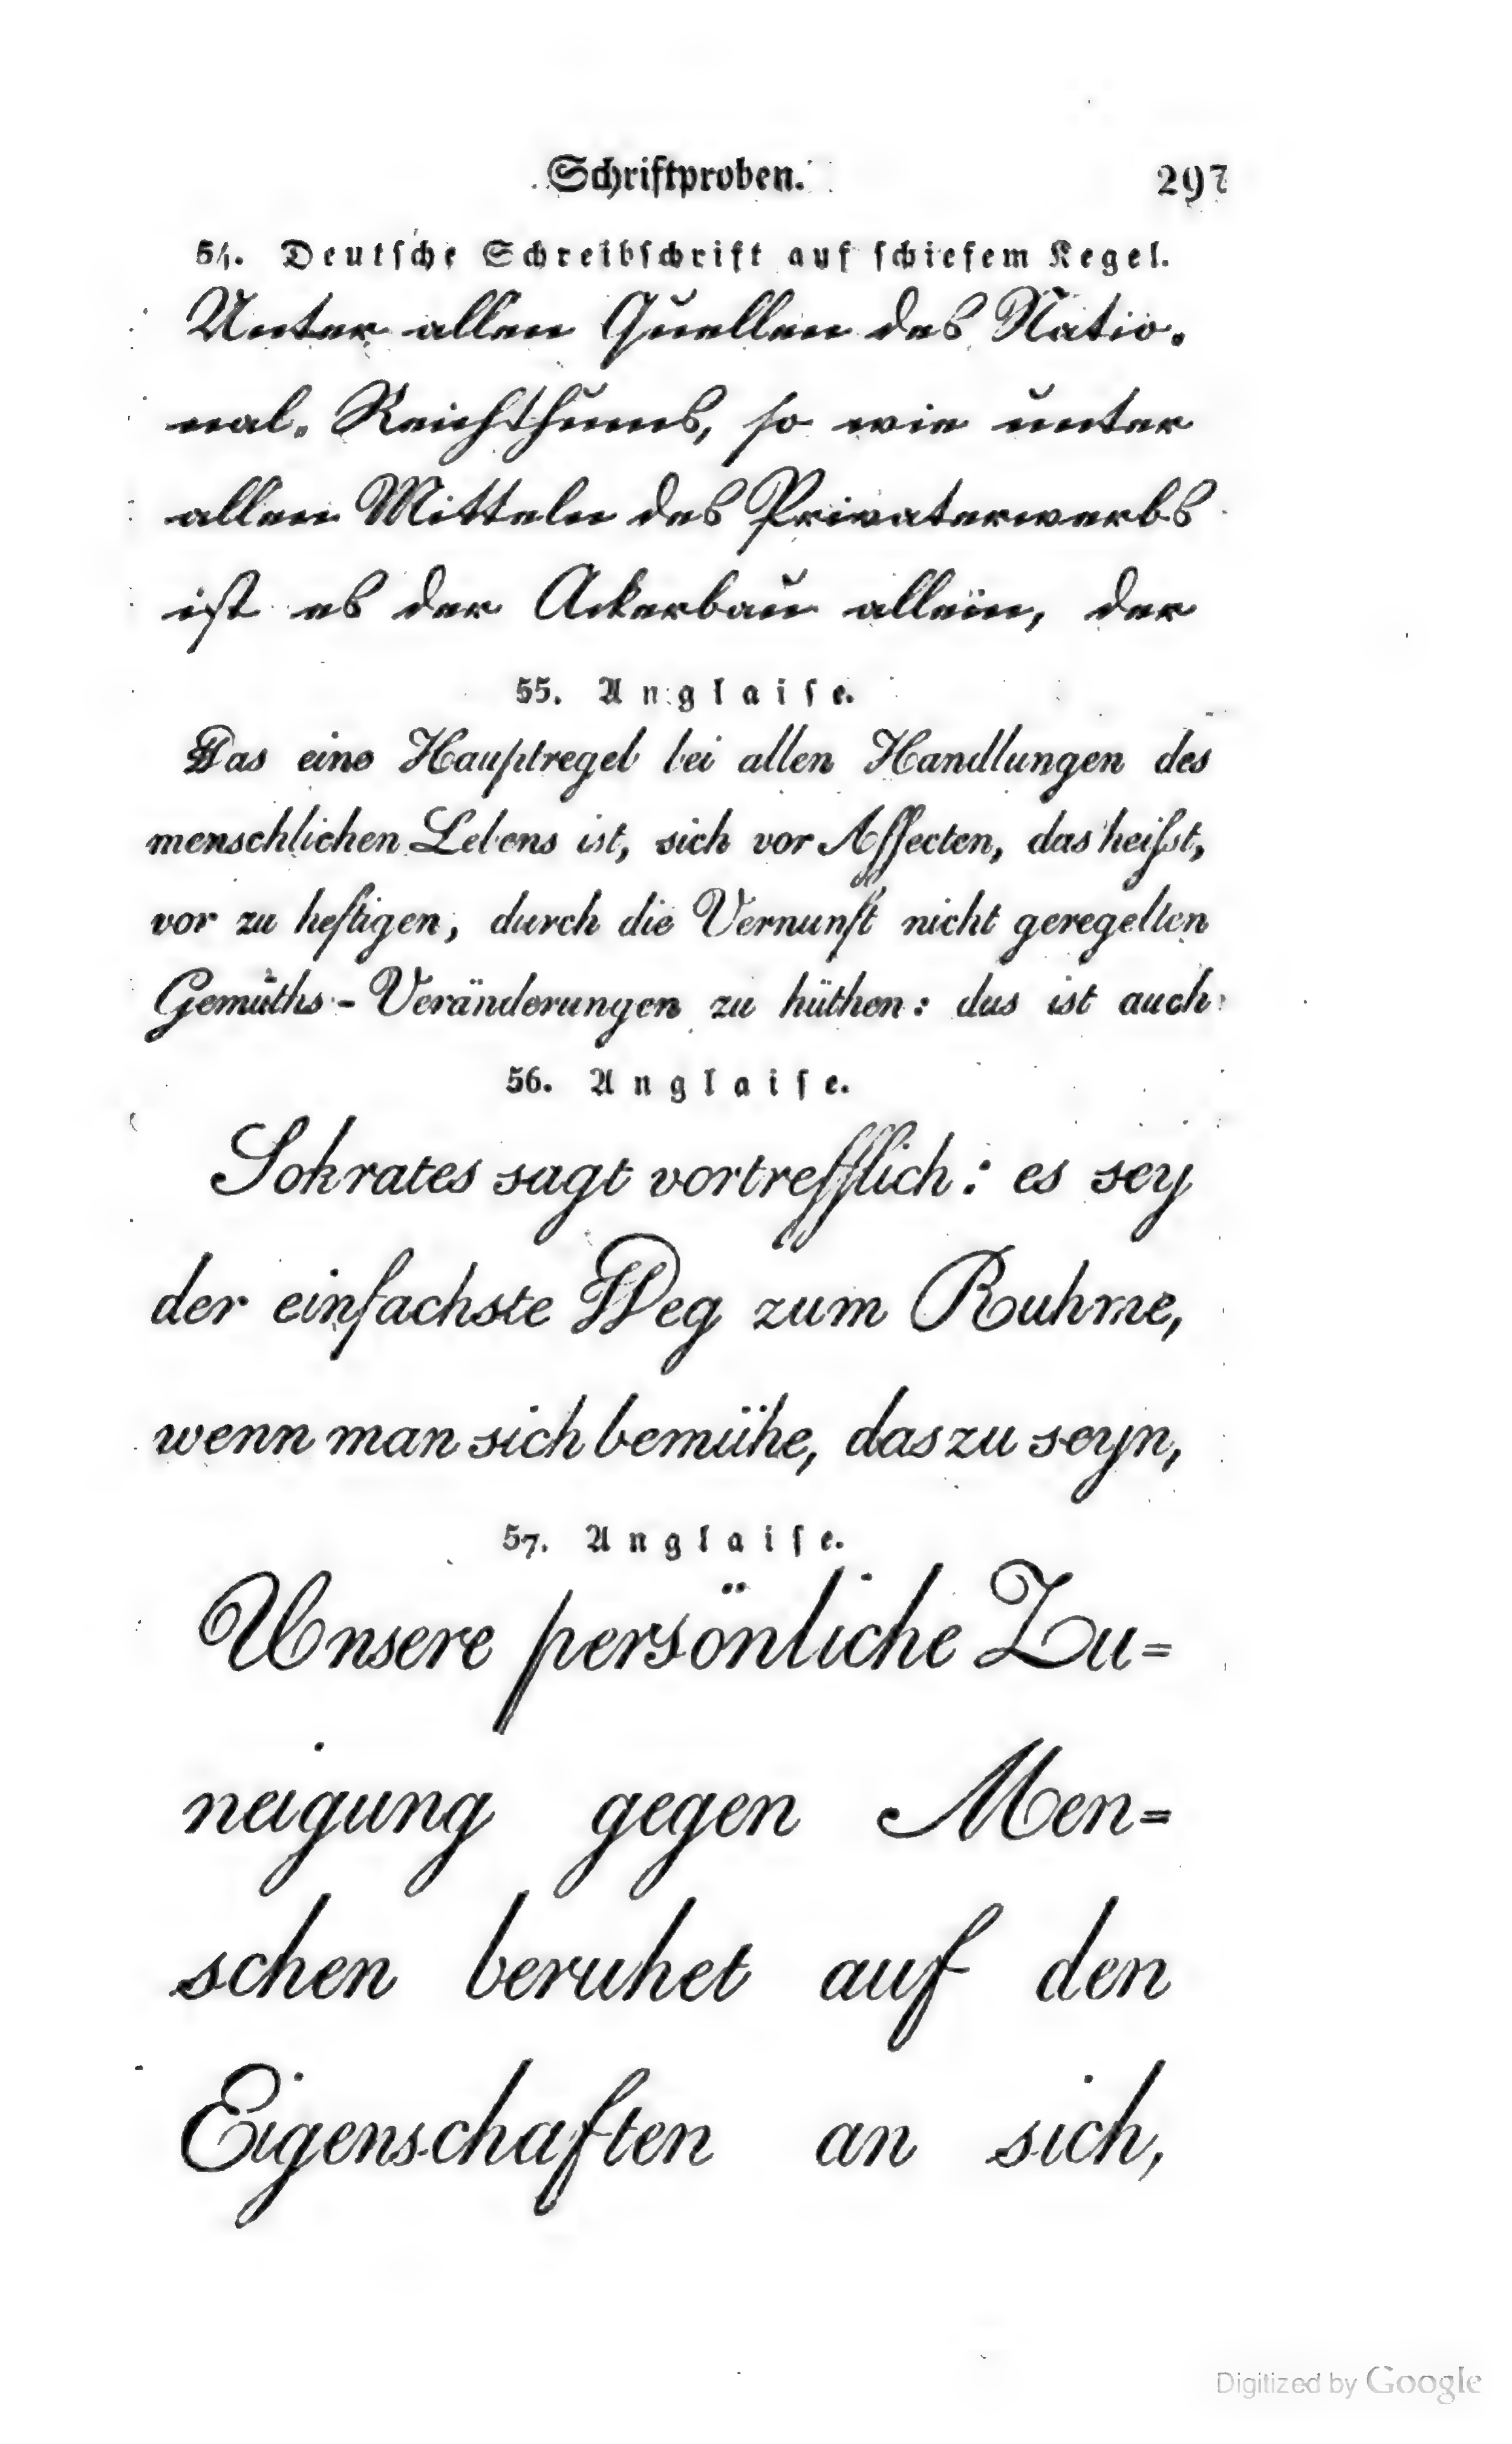 Schriftproben. 297
54. Deutsche Schreibschrift auf schiefem Kegel.
Unter allen Quellen des Natio-
nal-Reichthums, so wie unter
allen Mitteln des Privaterwerbs
ist es der Ackerbau allein, der
55. Anglaise.
Das eine Hauptregel bei allen Handlungen des
menschlichen Lebens ist, sich vor Affecten, das heißt,
vor zu heftigen, durch die Vernunft nicht geregelten
Gemüths-Veränderungen zu hüthen: das ist auch
56. Anglaise.
Sokrates sagt vortrefflich: es sey
der einfachste Weg zum Ruhme,
wenn man sich bemühe, das zu seyn,
57. Anglaise.
Unsere persönliche Zu=
neigung gegen Men=
schen beruhet auf den
Eigenschaften an sich,
Digitized by Google